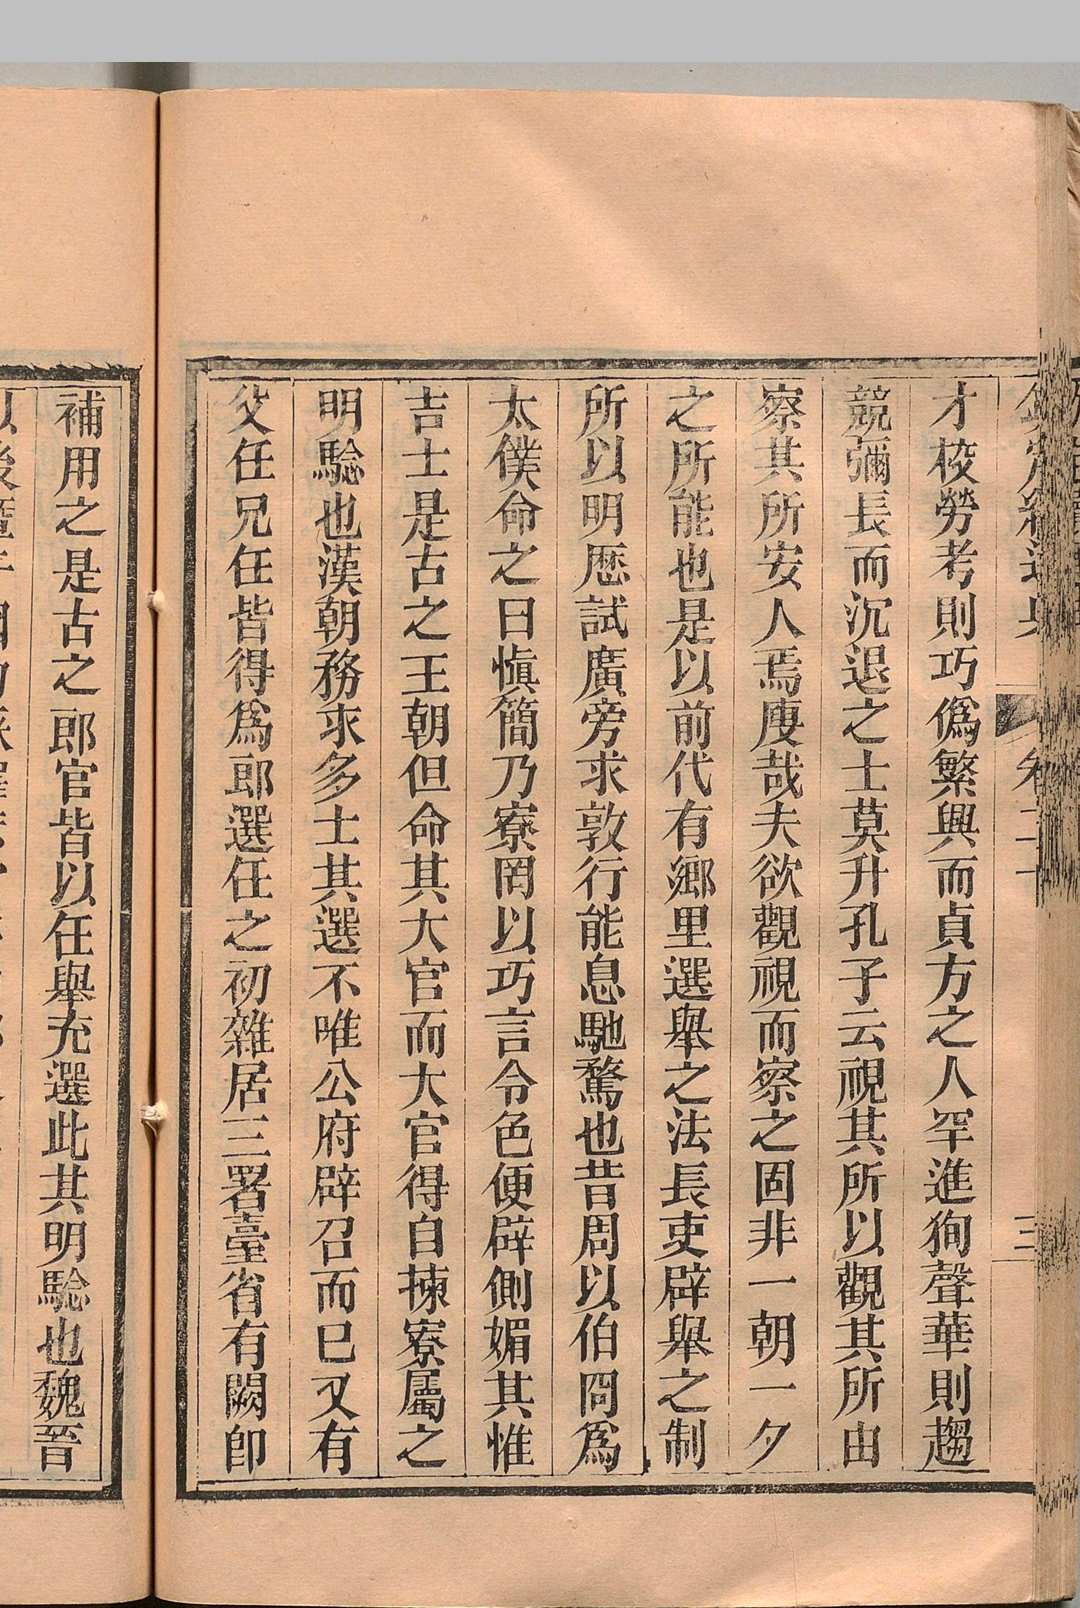 欽定續通典 卷二十 三
才校勞考則巧僞繁興而貞方之人罕進狥聲華則趨
競彌長而沉退之士莫升孔子云視其所以觀其所由
察其所安人焉廋哉夫欲觀視而察之固非一朝一夕
之所能也是以前代有鄉里選舉之法長吏辟舉之制
所以明歷試廣旁求敦行能息馳騖也昔周以伯冏爲
太僕命之曰愼簡乃寮罔以巧言令色便辟側媚其惟
吉士是古之王朝但命其大官而大官得自揀寮屬之
明驗也漢朝務求多士其選不唯公府辟召而已又有
父任兄任皆得爲郎選任之初雜居三署臺省有闕卽
補用之是古之郎官皆以任舉充選此其明驗也魏晉